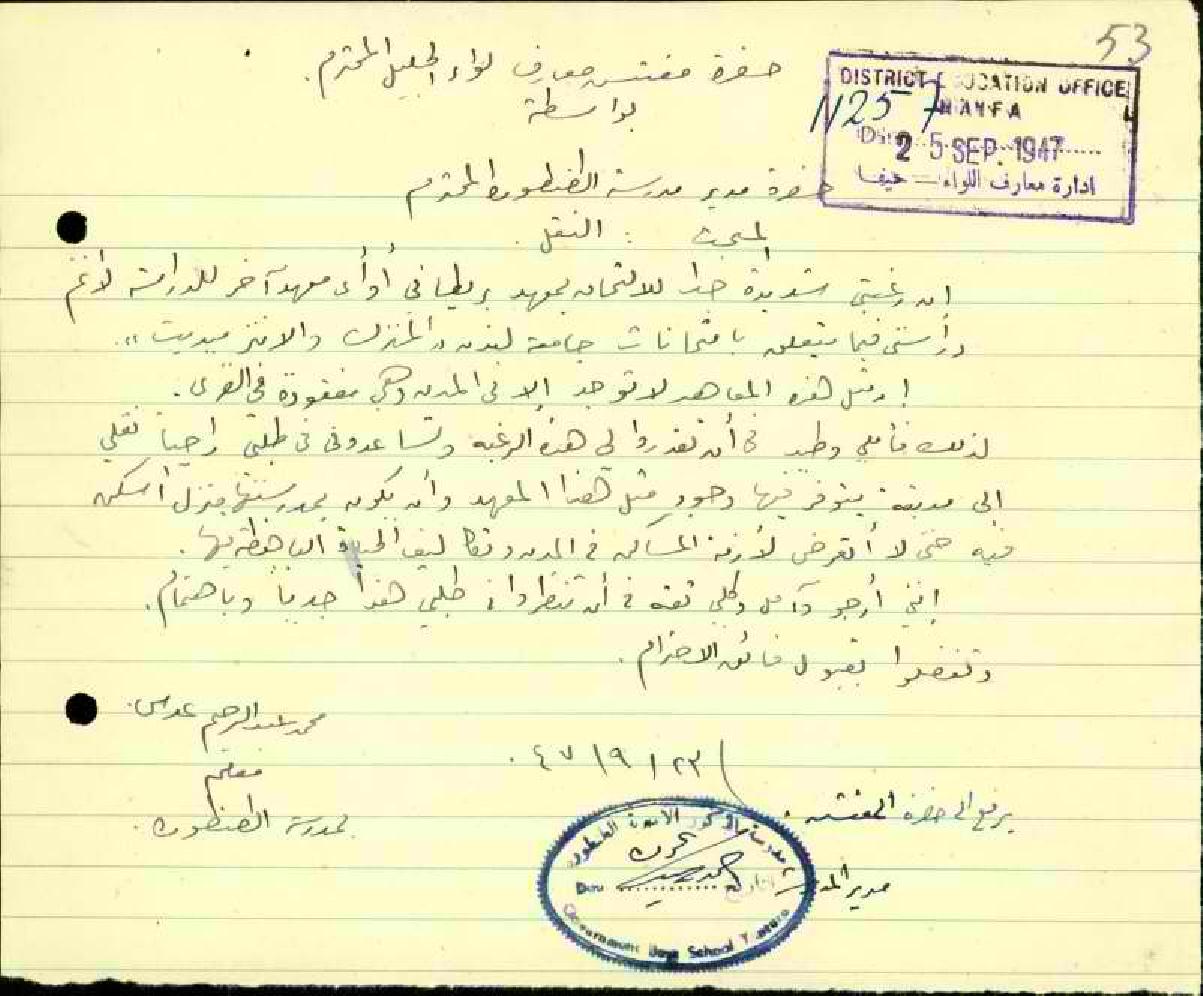 53
حضرة مفتش معارف لواء الجليل المحترم.
بواسطة
DISTRICT EDUCATION OFFICE
HAIFA
N257
Date 25 SEP. 1947
ادارة معارف اللواء — حيفا
حضرة مدير مدرسة الطنطورة المحترم
المبحث : النقل.
ان رغبتي شديدة جدا للالتحاق بمعهد بريطاني أو أي معهد آخر للدراسة لأتم
دراستي فيما يتعلق بامتحانات جامعة لندن "المترك والانترميديت".
إن مثل هذه المعاهد لا توجد إلا في المدن وهي مفقودة في القرى.
لذلك فأملي وطيد في أن تقدروا لي هذه الرغبة وتساعدوني في طلبي راجياً نقلي
الى مدينة يتوفر فيها وجود مثل هذا المعهد وأن يكون بمدرستها منزل أسكن
فيه حتى لا أتعرض لأزمة المساكن في المدن وتكاليف الحياة الباهظة بها.
إنني أرجو وآمل وكلي ثقة في أن تنظروا في طلبي هذا جدياً وباهتمام.
وتفضلوا بقبول فائق الاحترام.
محمد عبد الرحيم
معلم
بمدرسة الطنطورة.
٢٣/٩/٤٧.
يرفع الى حضرة المفتش.
مدير المدرسة
مدرسة الذكور الاميرية الطنطورة
Date
التاريخ
Government Boys School Tantura